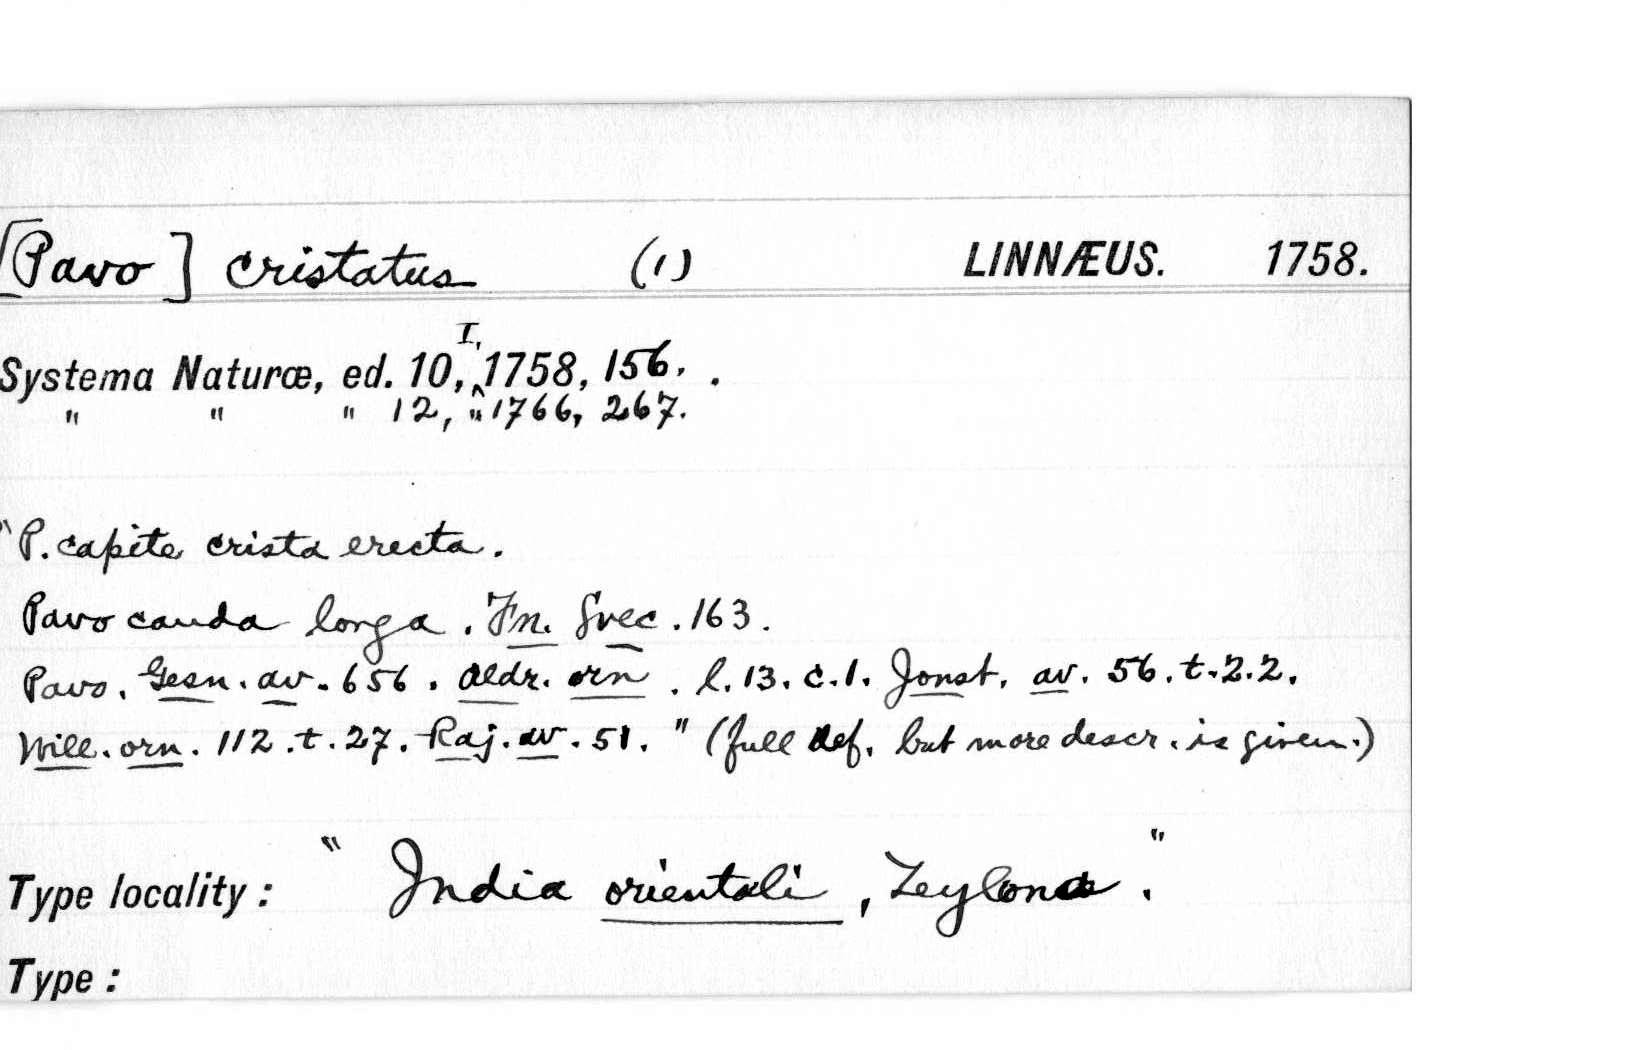 [Pavo] cristatus (1) LINNÆUS. 1758.
Systema Naturæ, ed. 10, I, 1758, 156. .
" " " 12, " 1766, 267.
"P. capite crista erecta.
Pavo cauda longa. Fn. Svec. 163.
Pavo. Gesn. av. 656. Aldr. orn. l. 13. c. 1. Jonst. av. 56. t. 22.
Will. orn. 112. t. 27. Raj. av. 51." (full def. but more descr. is given.)
Type locality: "India orientali, Zeylona."
Type: